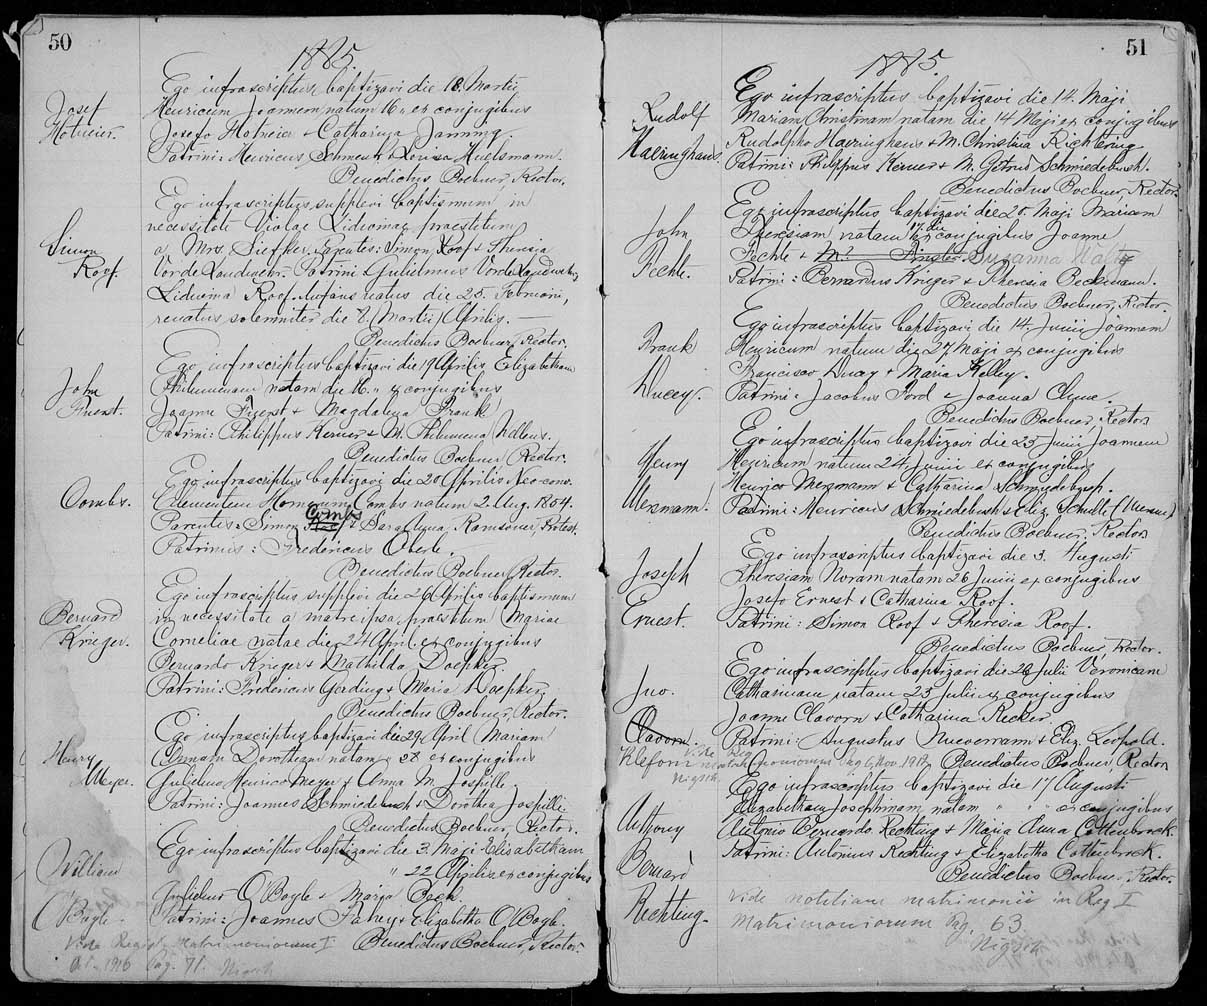 50
1885.
Ego infrascriptus baptizavi die 18. Martii
Josef Henricum Joannem natum 16 " ex conjugibus
Hofmeier. Josepho Hofmeier & Catharina Jamming.
Patrini: Henricus Schmenk & Louisa Huelsmann.
Benedictus Boebner, Rector.
Ego infrascriptus supplevi baptismum in
necessitate Violae Lidwinae praestitum
Simon a Mrs. Siefker. Parentes: Simon Roof & Theresia
Roof. Patrini Gulielmus
Lidwina Roof. Infans natus die 25. Februarii,
renatus solemniter die 8. (Martii) Aprilis. —
Benedictus Boebner, Rector.
Ego infrascriptus baptizavi die 19 Aprilis Elizabetham
John Philumenam natam die 16. " ex conjugibus
Fuerst. Joanne Fuerst & Magdalena Frank
Patrini: Philippus Kerner & M. Philumena
Benedictus Boebner Rector.
Ego infrascriptus baptizavi die 20 Aprilis Neo-conv.
Combs. Clementem Combs natum 2. Aug. 1854.
Combs
Parentes: Simon Roof & Sara Ransoner, Protest.
Patrinus: Fredericus Oberle.
Benedictus Boebner Rector.
Ego infrascriptus supplevi die 26 Aprilis baptismum
Bernard in necessitate a matre ipsa praestitum Mariae
Krieger. Corneliae natae die 24 April. ex conjugibus
Bernardo Krieger & Mathilda Doepker
Patrini: Fredericus Gerding & Maria Doepker
Benedictus Boebner, Rector.
Ego infrascriptus baptizavi die 29 April Mariam
Henry Dorotheam natam 28 ex conjugibus
Meyer. Gulielmo Henrico Meyer & Anna M. Jospille
Patrini: Joannes Schmiedebush & Dorothea Jospille
Benedictus Boebner, Rector.
Ego infrascriptus baptizavi die 3. Maji Elisabetham
William " 22 Aprilis ex conjugibus
O'Boyle. Gulielmo O'Boyle & Maria Beck.
Patrini: Joannes Fahey & Elizabetha O'Boyle.
Vide Registr. Matrimoniorum I Benedictus Boebner, Rector
1916 Pag. 71.
51
1885.
Ego infrascriptus baptizavi die 14. Maji
Rudolf Mariam natam die 14 Maji ex conjugibus
Haeringhaus. Rudolpho Haeringhaus & M. Christina Richtering
Patrini: Philippus Kerner & M. Gertrud Schmiedebush.
Benedictus Boebner, Rector
Ego infrascriptus baptizavi die 20. Maji Mariam
John Theresiam natam 17. die ex conjugibus Joanne
Fechte. Fechte & Susanna
Patrini: Bernardus Krieger & Theresia Beckmann.
Benedictus Boebner, Rector.
Ego infrascriptus baptizavi die 14. Junii Joannem
Frank Henricum natum die 27 Maji ex conjugibus
Francisco Ducey & Maria Kelley.
Ducey. Patrini: Jacobus Ford & Joanna Clyne.
Benedictus Boebner, Rector
Ego infrascriptus baptizavi die 25 Junii Joannem
Henry Henricum natum 24 Junii ex conjugibus
Henrico Mersmann & Catharina Schmiedebush.
Mersmann. Patrini: Henricus Schmiedebush & Eliz. Schulte
Benedictus Boebner, Rector
Ego infrascriptus baptizavi die 3. Augusti
Joseph Theresiam Noram natam 26 Junii ex conjugibus
Josefo Ernest & Catharina Roof.
Ernest. Patrini: Simon Roof & Theresia Roof.
Benedictus Boebner, Rector.
Ego infrascriptus baptizavi die 26 Julii Veronicam
Jno. Catharinam natam 25 Julii ex conjugibus
Joanne Clavorn & Catharina Recker
Clavorn. Patrini: Augustus & Eliz. Leopold.
Vide Reg. matrimoniorum Pag 6, Nov. 1912 Benedictus Boebner, Rector
Ego infrascriptus baptizavi die 17 Augusti
Elizabetham Josephinam natam " " ex conjugibus
Anthony Antonio Bernardo Rechting & Maria Anna Cottenbrock
Bernard Patrini: Antonius Rechting & Elizabetha Cottenbrock.
Benedictus Boebner, Rector.
Rechting. Vide notitiam matrimonii in Reg I
Matrimoniorum Pg. 63